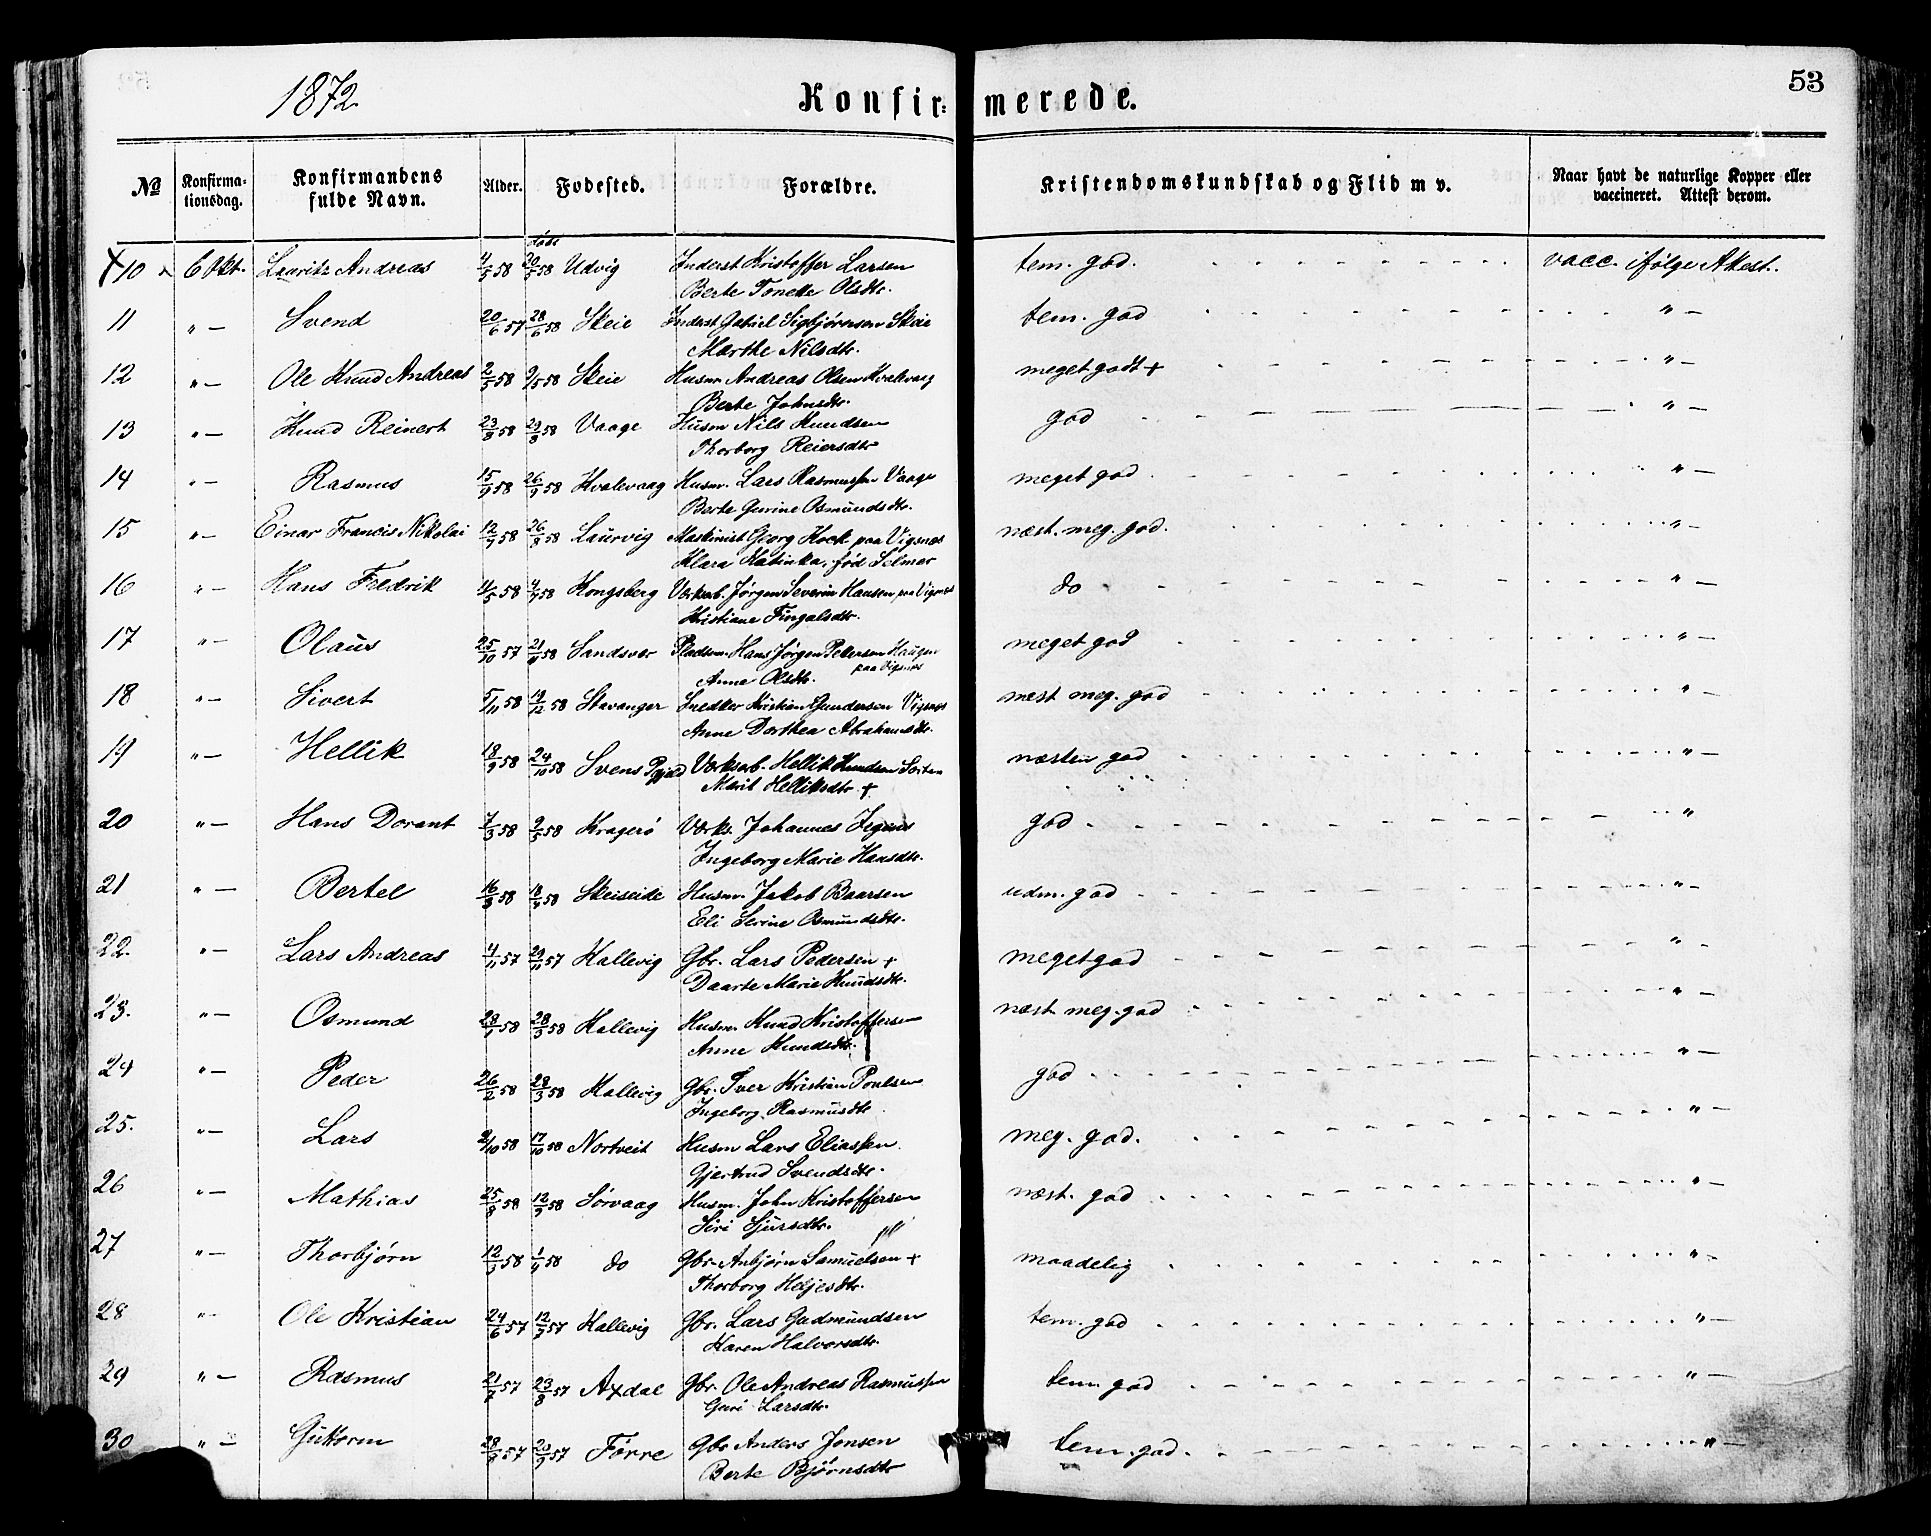 1872
Konfir-merede.
53
No
Konfirma-tionsdag.
Konfirmandens fulde Navn.
Alder.
Fødested.
Forældre.
Kristendomskundskab og Flid m v.
Naar havt de naturlige Kopper eller vaccineret. Attest derom.
døbt
10 6 Okt. Lauritz Andreas 4/5 58 20/5 58 Udvig Inderst Kristoffer Larsen tem. god. vacc. ifølge Attest.
Berte Tonette Olsdtr.
11 " — Svend 20/6 57 28/6 58 Skeie Inderst Gabriel Sigbjørnsen Skeie tem. god " —
Marthe Nilsdtr.
12 " — Ole Knud Andreas 2/5 58 9/5 58 Skeie Husm Andreas Olsen Kvalevaag meget godt + " —
Berte Johnsdtr.
13 " — Knud Reinert 23/8 58 29/8 58 Vaage Husm Nils Knudsen god " —
Thorborg Reiersdtr
14 " — Rasmus 15/9 58 26/9 58 Kvalevaag Husm. Lars Rasmussen Vaage meget god " —
Berte Gurine Osmundsdtr.
15 " — Einar Francis Nikolai 12/7 58 26/8 58 Laurvig Maskinist Georg Kock paa Vigsnæs næst. meg. god. " —
Klara Katinka, fød Selmer
16 " — Hans Fredrik 4/5 58 58 Kongsberg Værksarb. Jørgen Severin Hansen paa Vigsnæs do " —
Kristiane Fingalsdtr.
17 " — Olaus 25/10 57 58 Sandsver Pladsm. Hans Jørgen Petersen Haugen meget god " —
paa Vigsnæs
Anne Olsdtr.
18 " — Sivert 5/11 58 19/12 58 Stavanger Snedker Kristian Gundersen Vigsnæs næst meg. god " —
Anne Dorthea Abrahamsdtr.
19 " — Hellik 18/9 58 24/10 58 Svens Værksarb. Hellik Knudsen næsten god " —
Marit Helliksdtr +
20 " — Hans Dorant 7/3 58 2/5 58 Kragerø Værks. Johannes god "
Ingeborg Marie Hansdtr.
21 " — Bertel 16/3 58 58 Skeiseide Husm. Jakob Baarsen udm. god " —
Eli Serine Osmundsdtr.
22. " — Lars Andreas 4/11 57 29/11 57 Hallevig Gbr. Lars Pedersen + meget god " —
Daarte Marie Knudsdtr.
23. " — Osmund 58 28/3 58 Hallevig Husm. Knud Kristoffersen næst meg. god " —
Anne Knudsdtr.
24 " — Peder 26/2 58 28/3 58 Hallevig Gbr. Iver Kristian Poulsen god " —
Ingeborg Rasmusdtr
25. " — Lars 2/10 58 17/10 58 Nortveit Husm Lars Eliassen meg. god. " —
Gjertrud Svendsdtr.
26 " — Mathias 25/8 58 12/9 58 Sørvaag Husm. John Kristoffersen næst. god " —
Siri Sjursdtr.
27 " — Thorbjørn 12/3 58 1/4 58 do Gbr. Anbjørn Samuelsen + maadelig " —
Thorborg Heljesdtr.
28 " — Ole Kristian 24/6 57 12/7 57 Hallevig Gbr. Lars Gudmundsen tem. god " —
Karen Halvorsdtr.
29 " — Rasmus 57 23/8 57 Axdal Gbr. Ole Andreas Rasmussen tem. god " —
Guri Larsdtr.
30 " — Guttorm 57 57 Førre Gbr Anders Jonsen tem. god. " —
Berte Bjørnsdtr